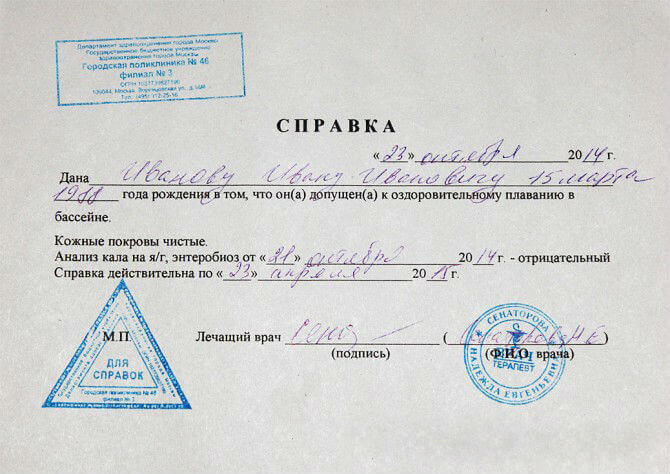 Департамент здравоохранения города Москвы
Государственное бюджетное учреждение
здравоохранения города Москвы
Городская поликлиника № 46
филиал № 3
109044, Москва, Воронцовская ул., д.14А
СПРАВКА
«23» октября 2014 г.
Дана Иванову Ивану Ивановичу 15 марта
1988 года рождения в том, что он(а) допущен(а) к оздоровительному плаванию в
бассейне.
Кожные покровы чистые.
Анализ кала на я/г, энтеробиоз от «21» октября 2014 г. - отрицательный
Справка действительна по «23» апреля 2015 г.
М.П. Лечащий врач ( )
(подпись) (Ф.И.О. врача)
ДЛЯ
СПРАВОК
Городская поликлиника № 46
филиал № 3
СЕНАТОРОВА
НАДЕЖДА ЕВГЕНЬЕВНА
ВРАЧ
ТЕРАПЕВТ